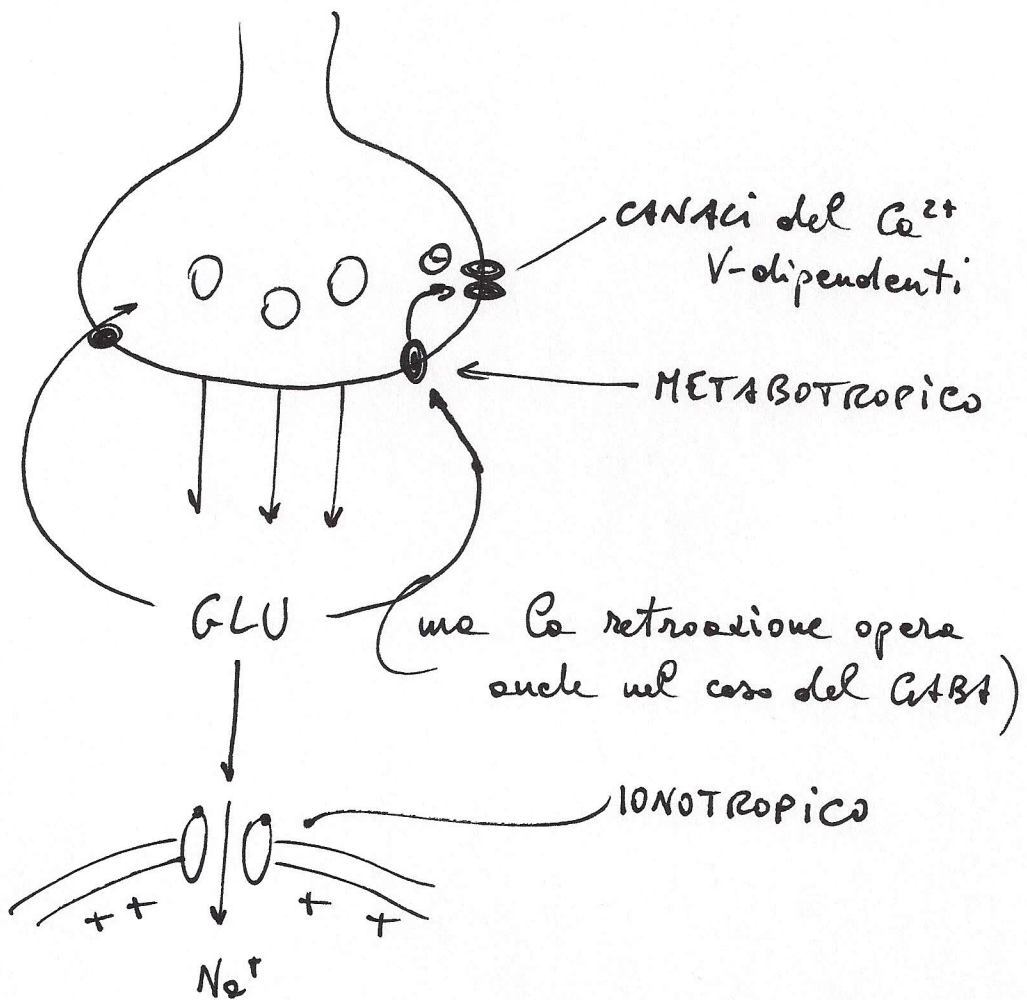 CANALi del Ca²⁺
V-dipendenti
⊖
METABOTROPiCO
GLU
(ma la retroazione opera
anche nel caso del GABA)
IONOTROPiCO
+ +
+ +
Na⁺